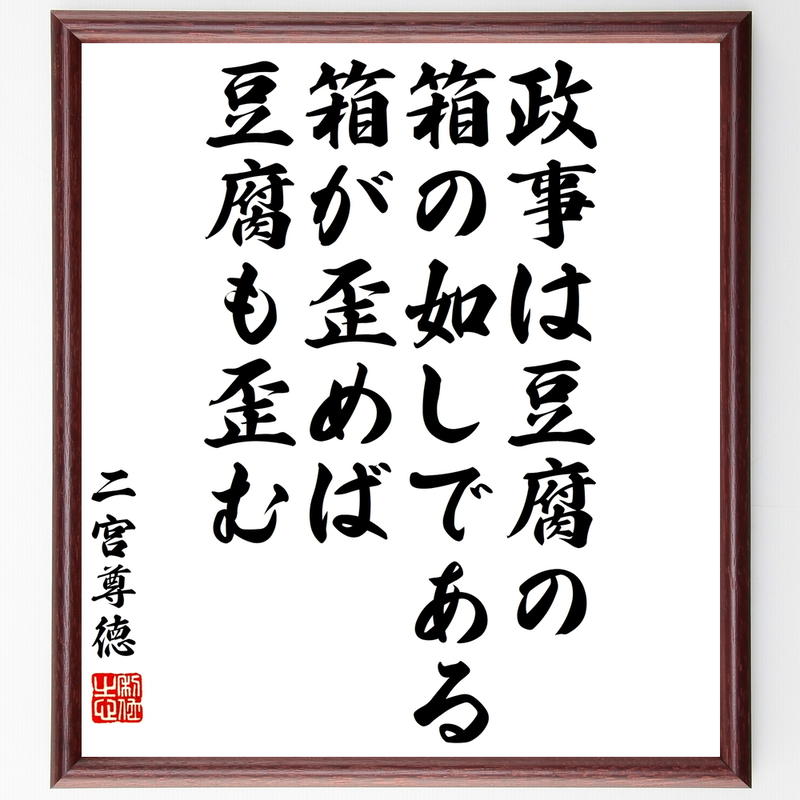 政事は豆腐の
箱の如しである
箱が歪めば
豆腐も歪む
二宮尊徳